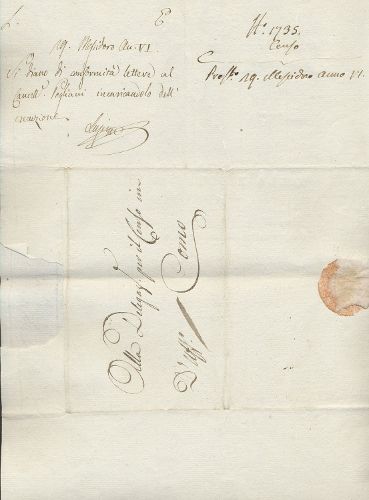 L. E.
19. Messidoro An. VI.
Si scrive di conformità lettera al
Cancell. Pagliani incaricandolo dell'
N.° 1735.
Censo
Prost.° 19. Messidoro anno VI.
Alla Delegaz.e per il Censo in
D'Uff.° Como